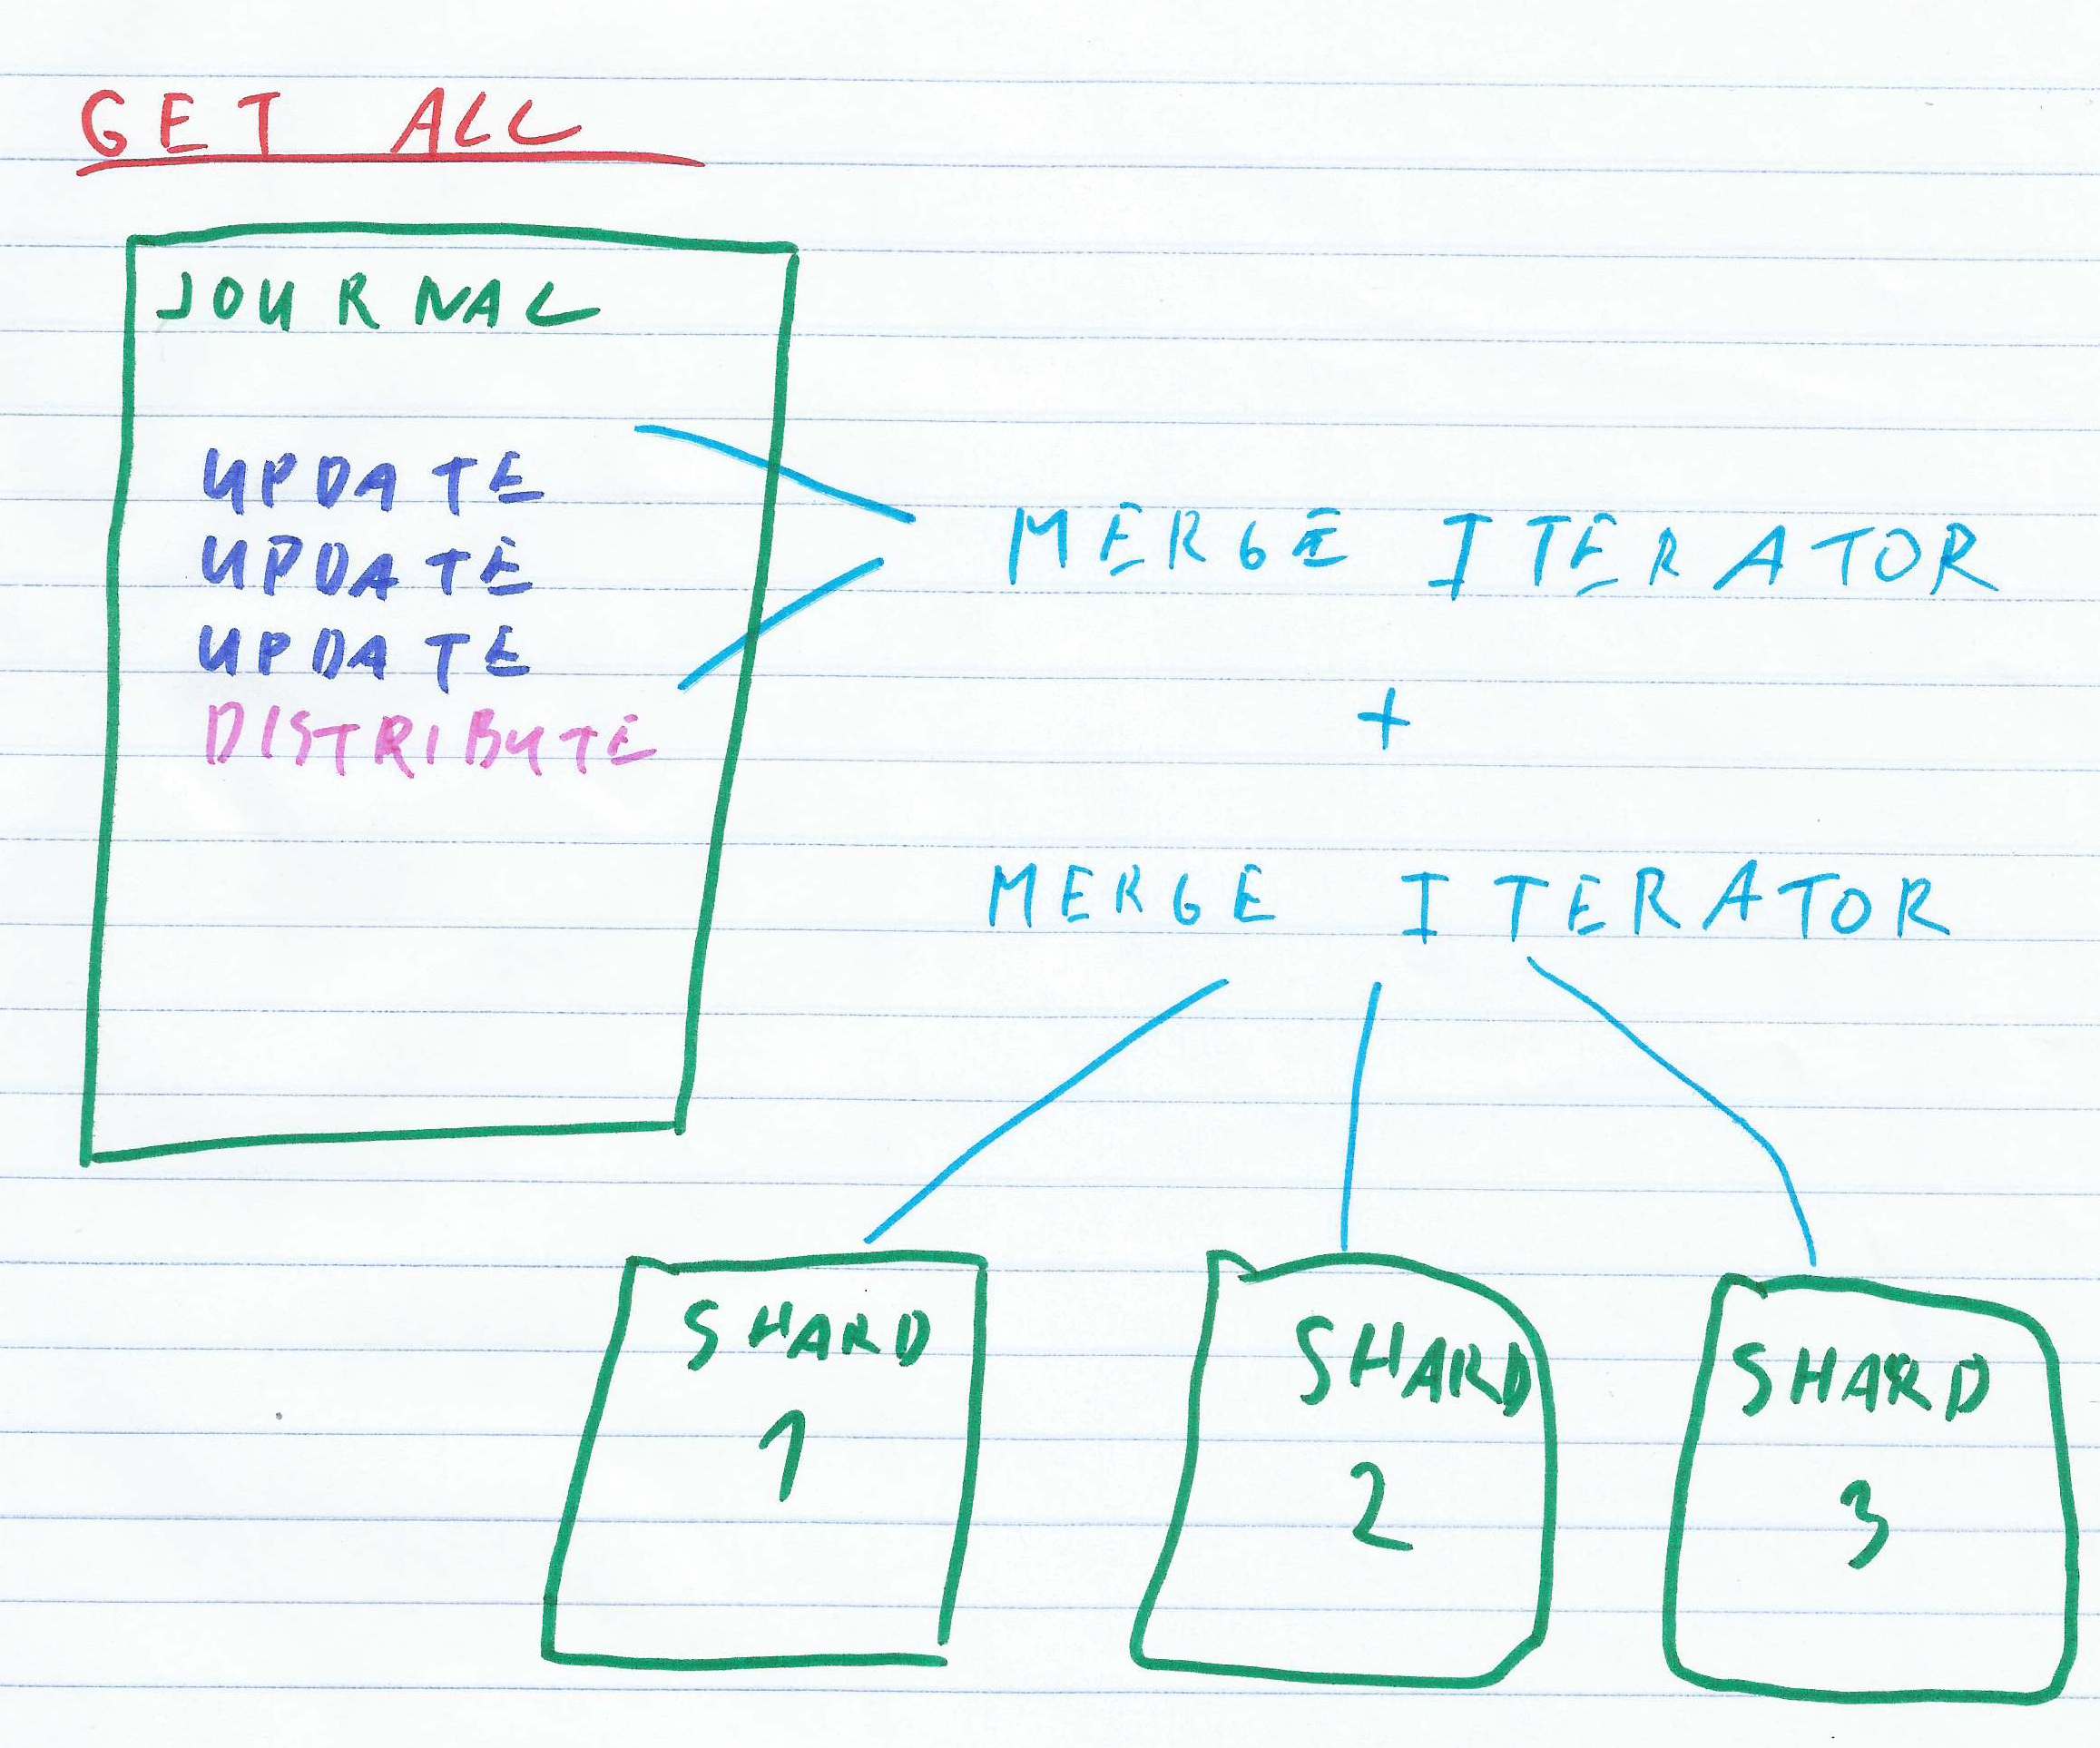 GET ALL
JOURNAL
UPDATE
UPDATE
UPDATE
DISTRIBUTE
MERGE ITERATOR
+
MERGE ITERATOR
SHARD
1
SHARD
2
SHARD
3